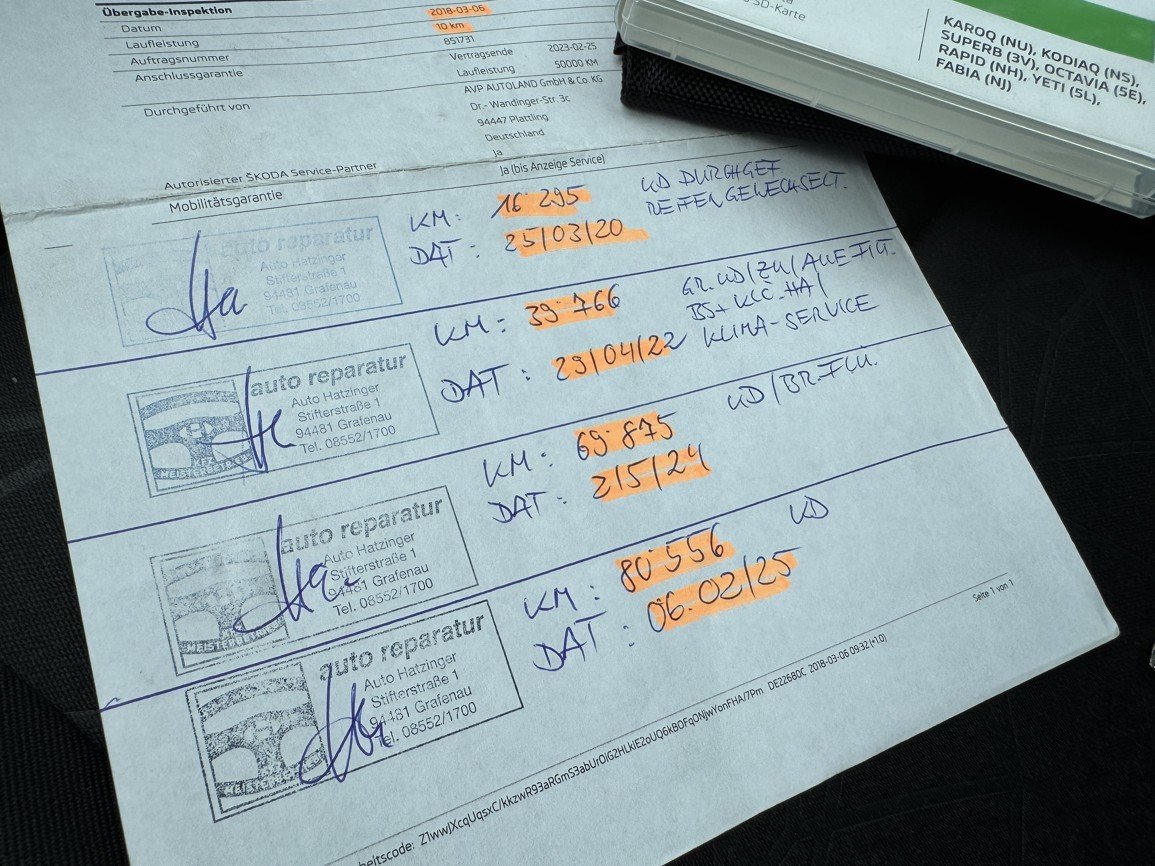 Übergabe-Inspektion
Datum 2018-03-06
Laufleistung 10 km
Auftragsnummer 851731
Anschlussgarantie Vertragsende 2023-02-25
Laufleistung 50000 KM
Durchgeführt von AVP AUTOLAND GmbH & Co. KG
Dr.- Wandinger-Str. 3c
94447 Plattling
Deutschland
Autorisierter ŠKODA Service-Partner Ja
Mobilitätsgarantie Ja (bis Anzeige Service)
SD-Karte
KAROQ (NU), KODIAQ (NS),
SUPERB (3V), OCTAVIA (5E),
RAPID (NH), YETI (5L),
FABIA (NJ)
auto reparatur
Auto Hatzinger
Stifterstraße 1
94481 Grafenau
Tel. 08552/1700
KM: 16 295
DAT: 25/03/20
KD DURCHGEF
REIFEN GEWECHSELT.
auto reparatur
Auto Hatzinger
Stifterstraße 1
94481 Grafenau
Tel. 08552/1700
KFZ
MEISTERBETRIEB
KM: 39.766
DAT: 29/04/22
GR. KD/ZK/
BS+
KLIMA-SERVICE
auto reparatur
Auto Hatzinger
Stifterstraße 1
94481 Grafenau
Tel. 08552/1700
MEISTERBETRIEB
KM: 69.875
DAT: 2/5/24
KD/BR.FLÜ.
auto reparatur
Auto Hatzinger
Stifterstraße 1
94481 Grafenau
Tel. 08552/1700
MEISTERBETRIEB
KM: 80.556
DAT: 06.02/25
KD
Seite 1 von 1
DE22680C 2018-03-06 09:32 (+1.0)